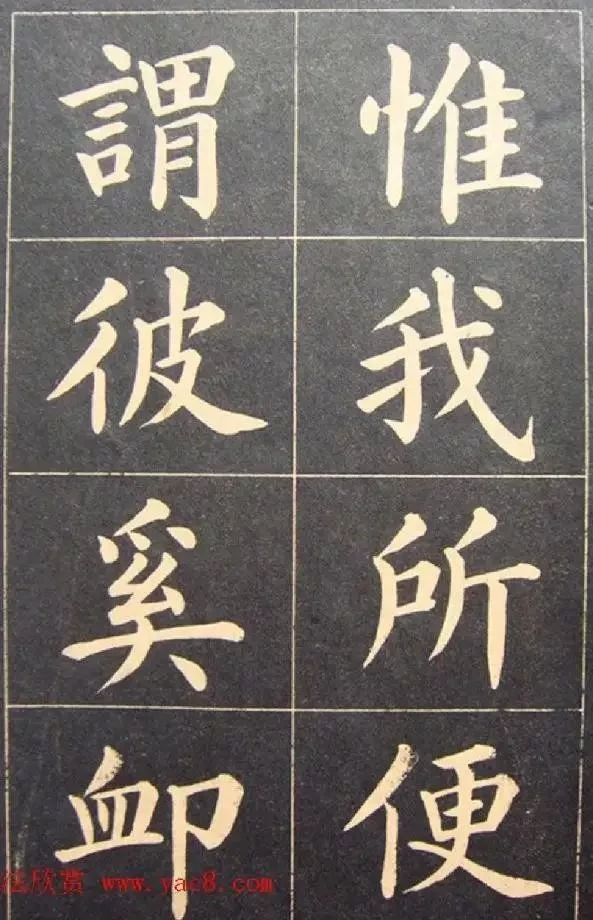 惟我所便
謂彼奚卹
法欣赏 www.yac8.com